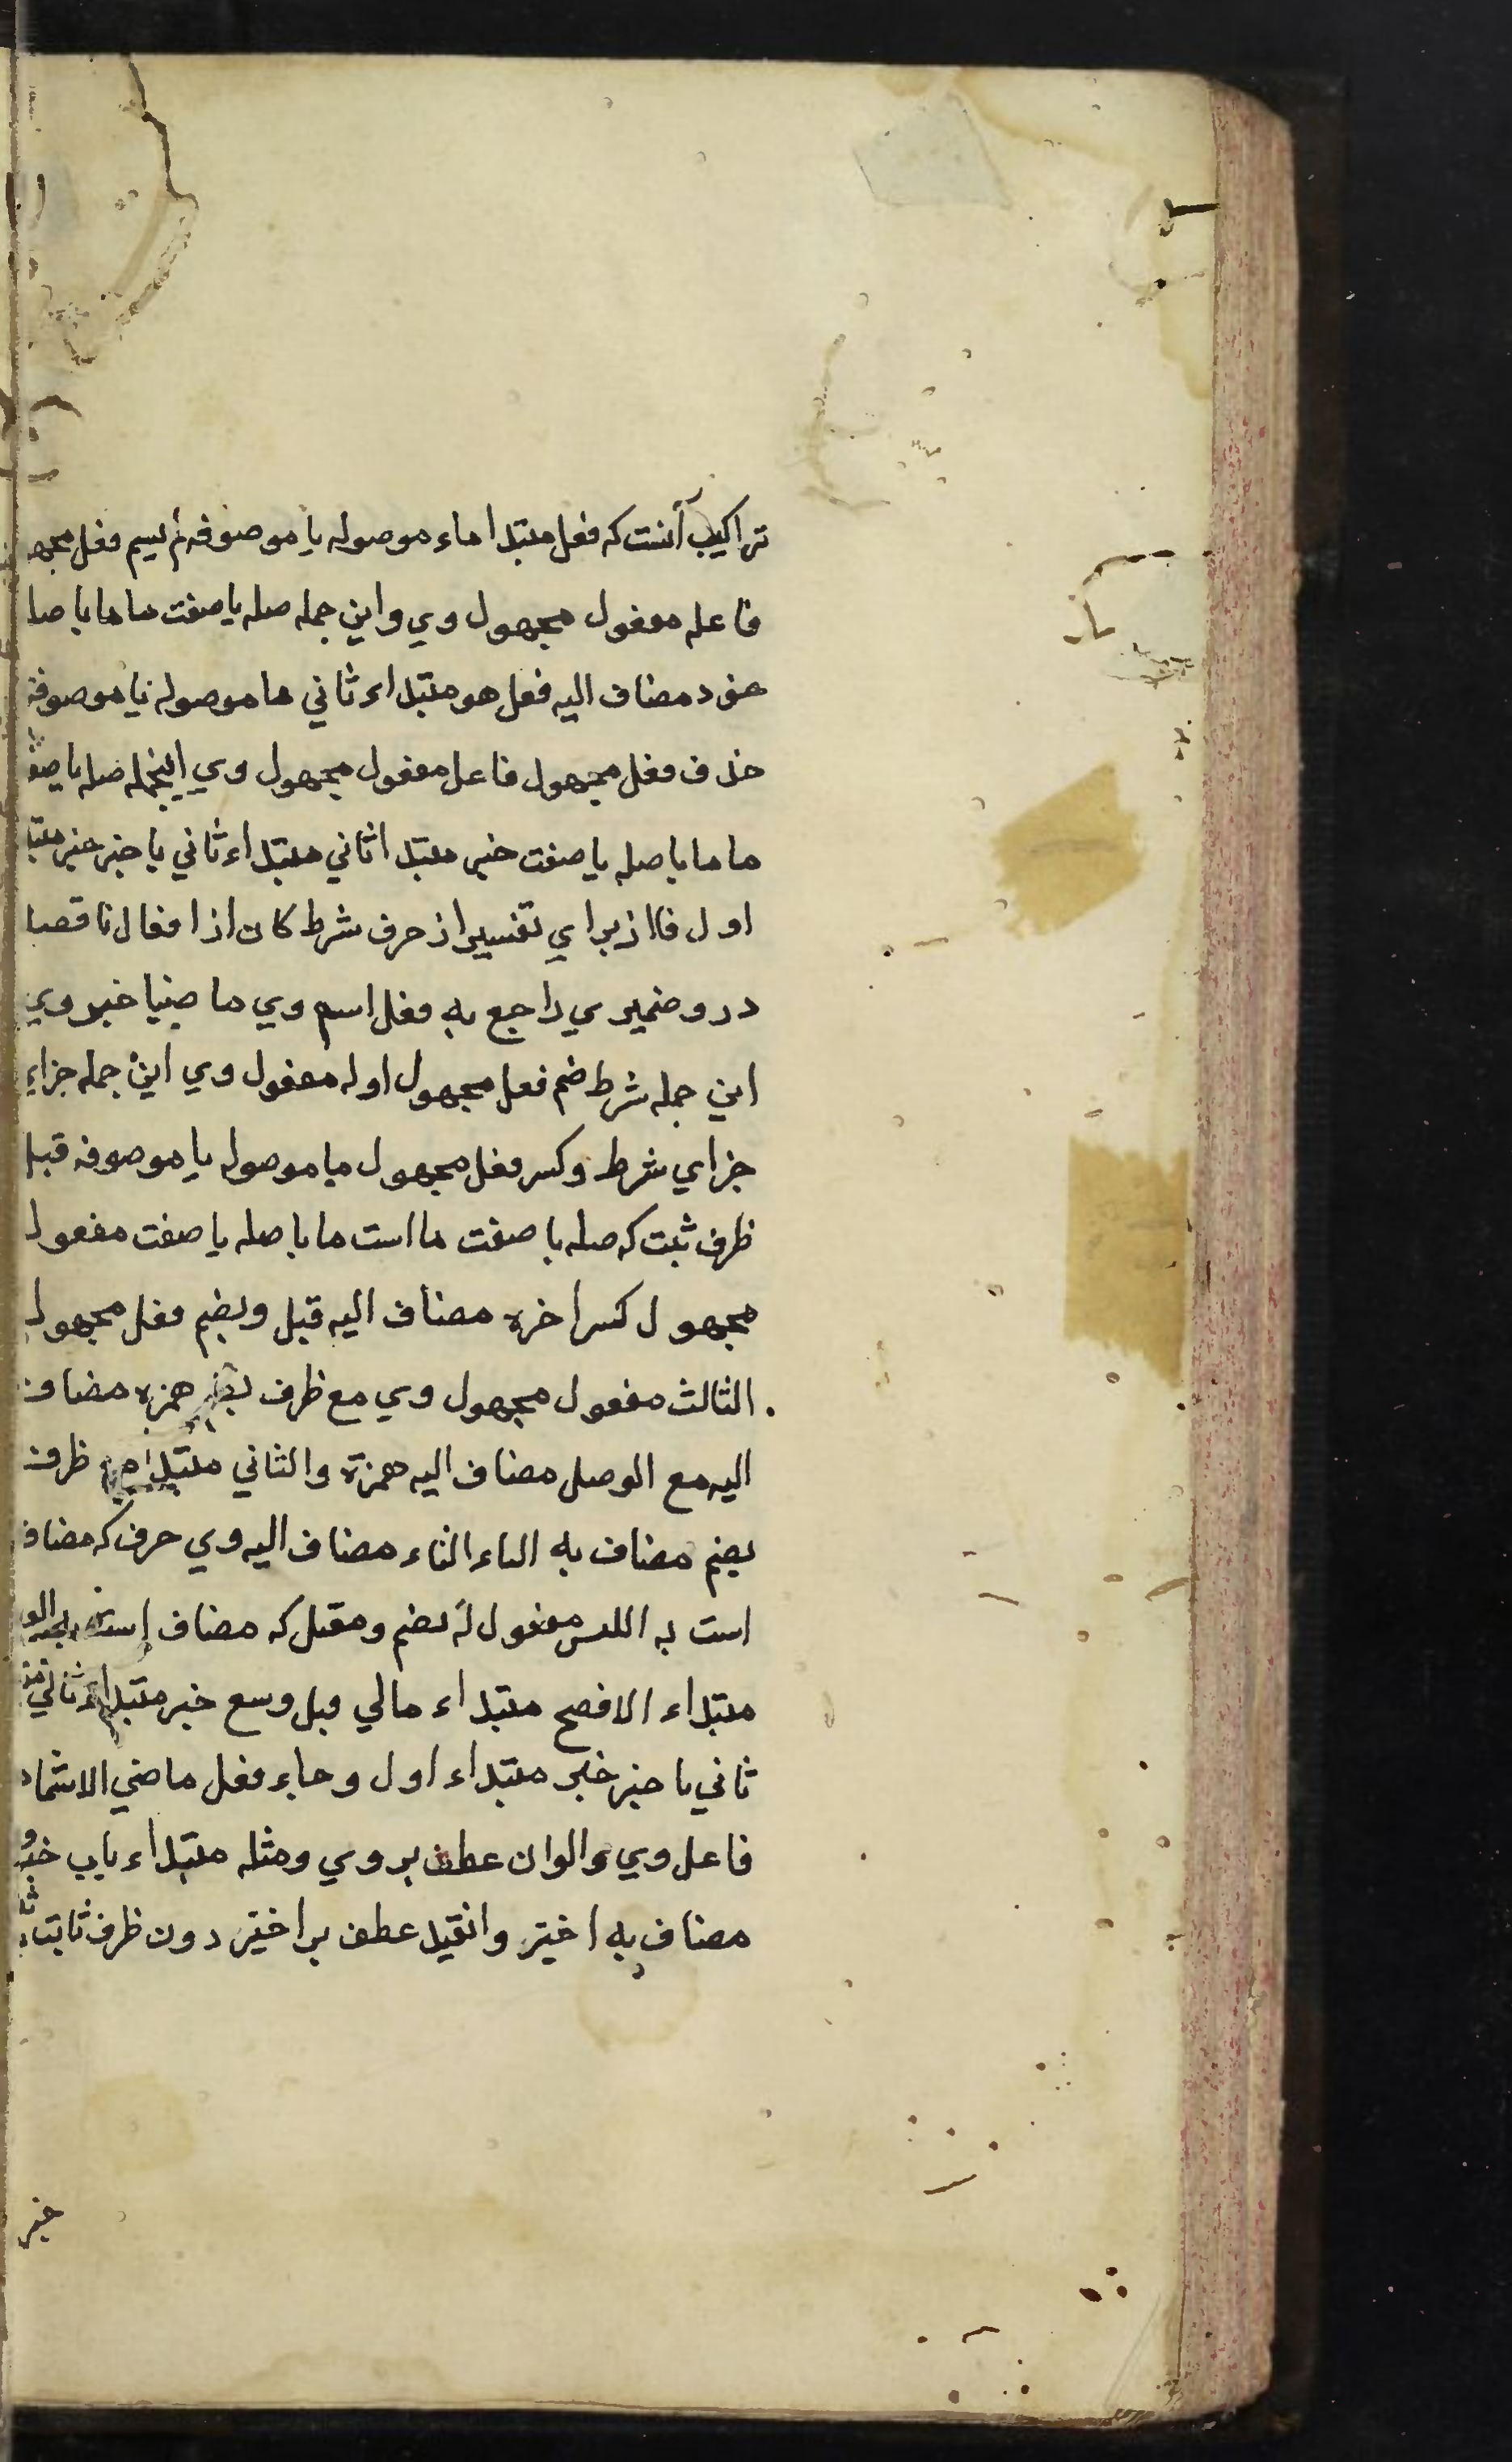 تراكيب آنست كه فعل مبتدا ماء موصوله يا موصوفه لم يسم فعل مجهو
فاعله مفعول مجهول وي واين جمله صله يا صفت ما ما با صله
مضاف اليه فعل هو مبتداء ثاني ما موصوله يا موصوفه
حذف فعل مجهول فاعل مفعول مجهول وي اينجمله صله يا صفة
ما ما با صله يا صفت خبر مبتدا ثاني مبتداء ثاني با خبر خبر مبتدا
اول فا از براي تفسير از حرف شرط كان از افعال ناقصه
درو ضميري راجع به فعل اسم وي ماضيا خبر وي
اين جمله شرط ضم فعل مجهول اوله مفعول وي اين جمله جزاء
جزاي شرط وكسر فعل مجهول ما موصوله يا موصوفه قبل
ظرف ثبت كه صله يا صفت ما است ما با صله يا صفت مفعول
مجهول كسر اخره مضاف اليه قبل ويضم فعل مجهول
الثالث مفعول مجهول وي مع ظرف يضم همزه مضاف
اليه مع الوصل مضاف اليه همزة والثاني مبتدا مع ظرف
يضم مضاف به التاء التاء مضاف اليه وي حرف كه مضاف
است به اللبس مفعول له يضم ومعتل كه مضاف است به العين
مبتداء الافصح مبتداء مالي قيل وبيع خبر مبتداء ثاني
ثاني با خبر خبر مبتداء اول وجاء فعل ماضي الاشمام
فاعل وي والواو ان عطف بر وي ومثله مبتداء باب خبر
مضاف به اختير وانقيد عطف بر اختير دون ظرف ثابت
خبر